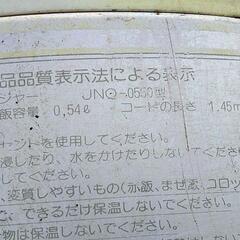 品品質表示法による表示
ジャー JNO-0550型
飯容量 0,54ℓ コードの長さ 1.45m
セントを使用してください。
浸したり、水をかけたりしないでくださ
ください。
変質しやすいもの(赤飯、まぜ、コロッ
と、できるだけ保温しないでください。
物は保温しないでください。